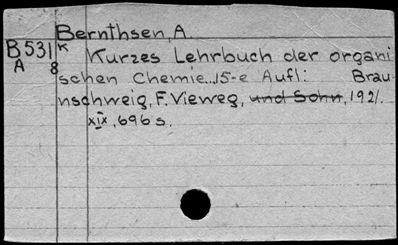 Bernthsen, A
B531 K Kurzes Lehrbuch der organi
A 8 schen Chemie..15-e Aufl: Brau-
nschweig, F. Vieweg, und Sohn, 1921.
xix, 696 s.